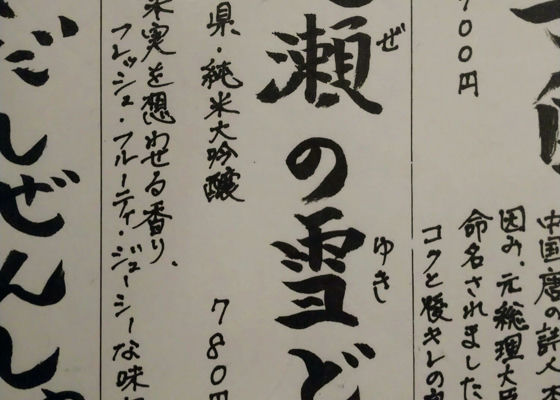 ００円
中国唐の詩人
因み、元総理大臣
命名されました
コクと後キレの
ぜ ゆき
瀬の雪ど
県・純米大吟醸 ７８０円
実を想わせる香り、
フレッシュ・フルーティ・ジューシーな味
だしぜんし